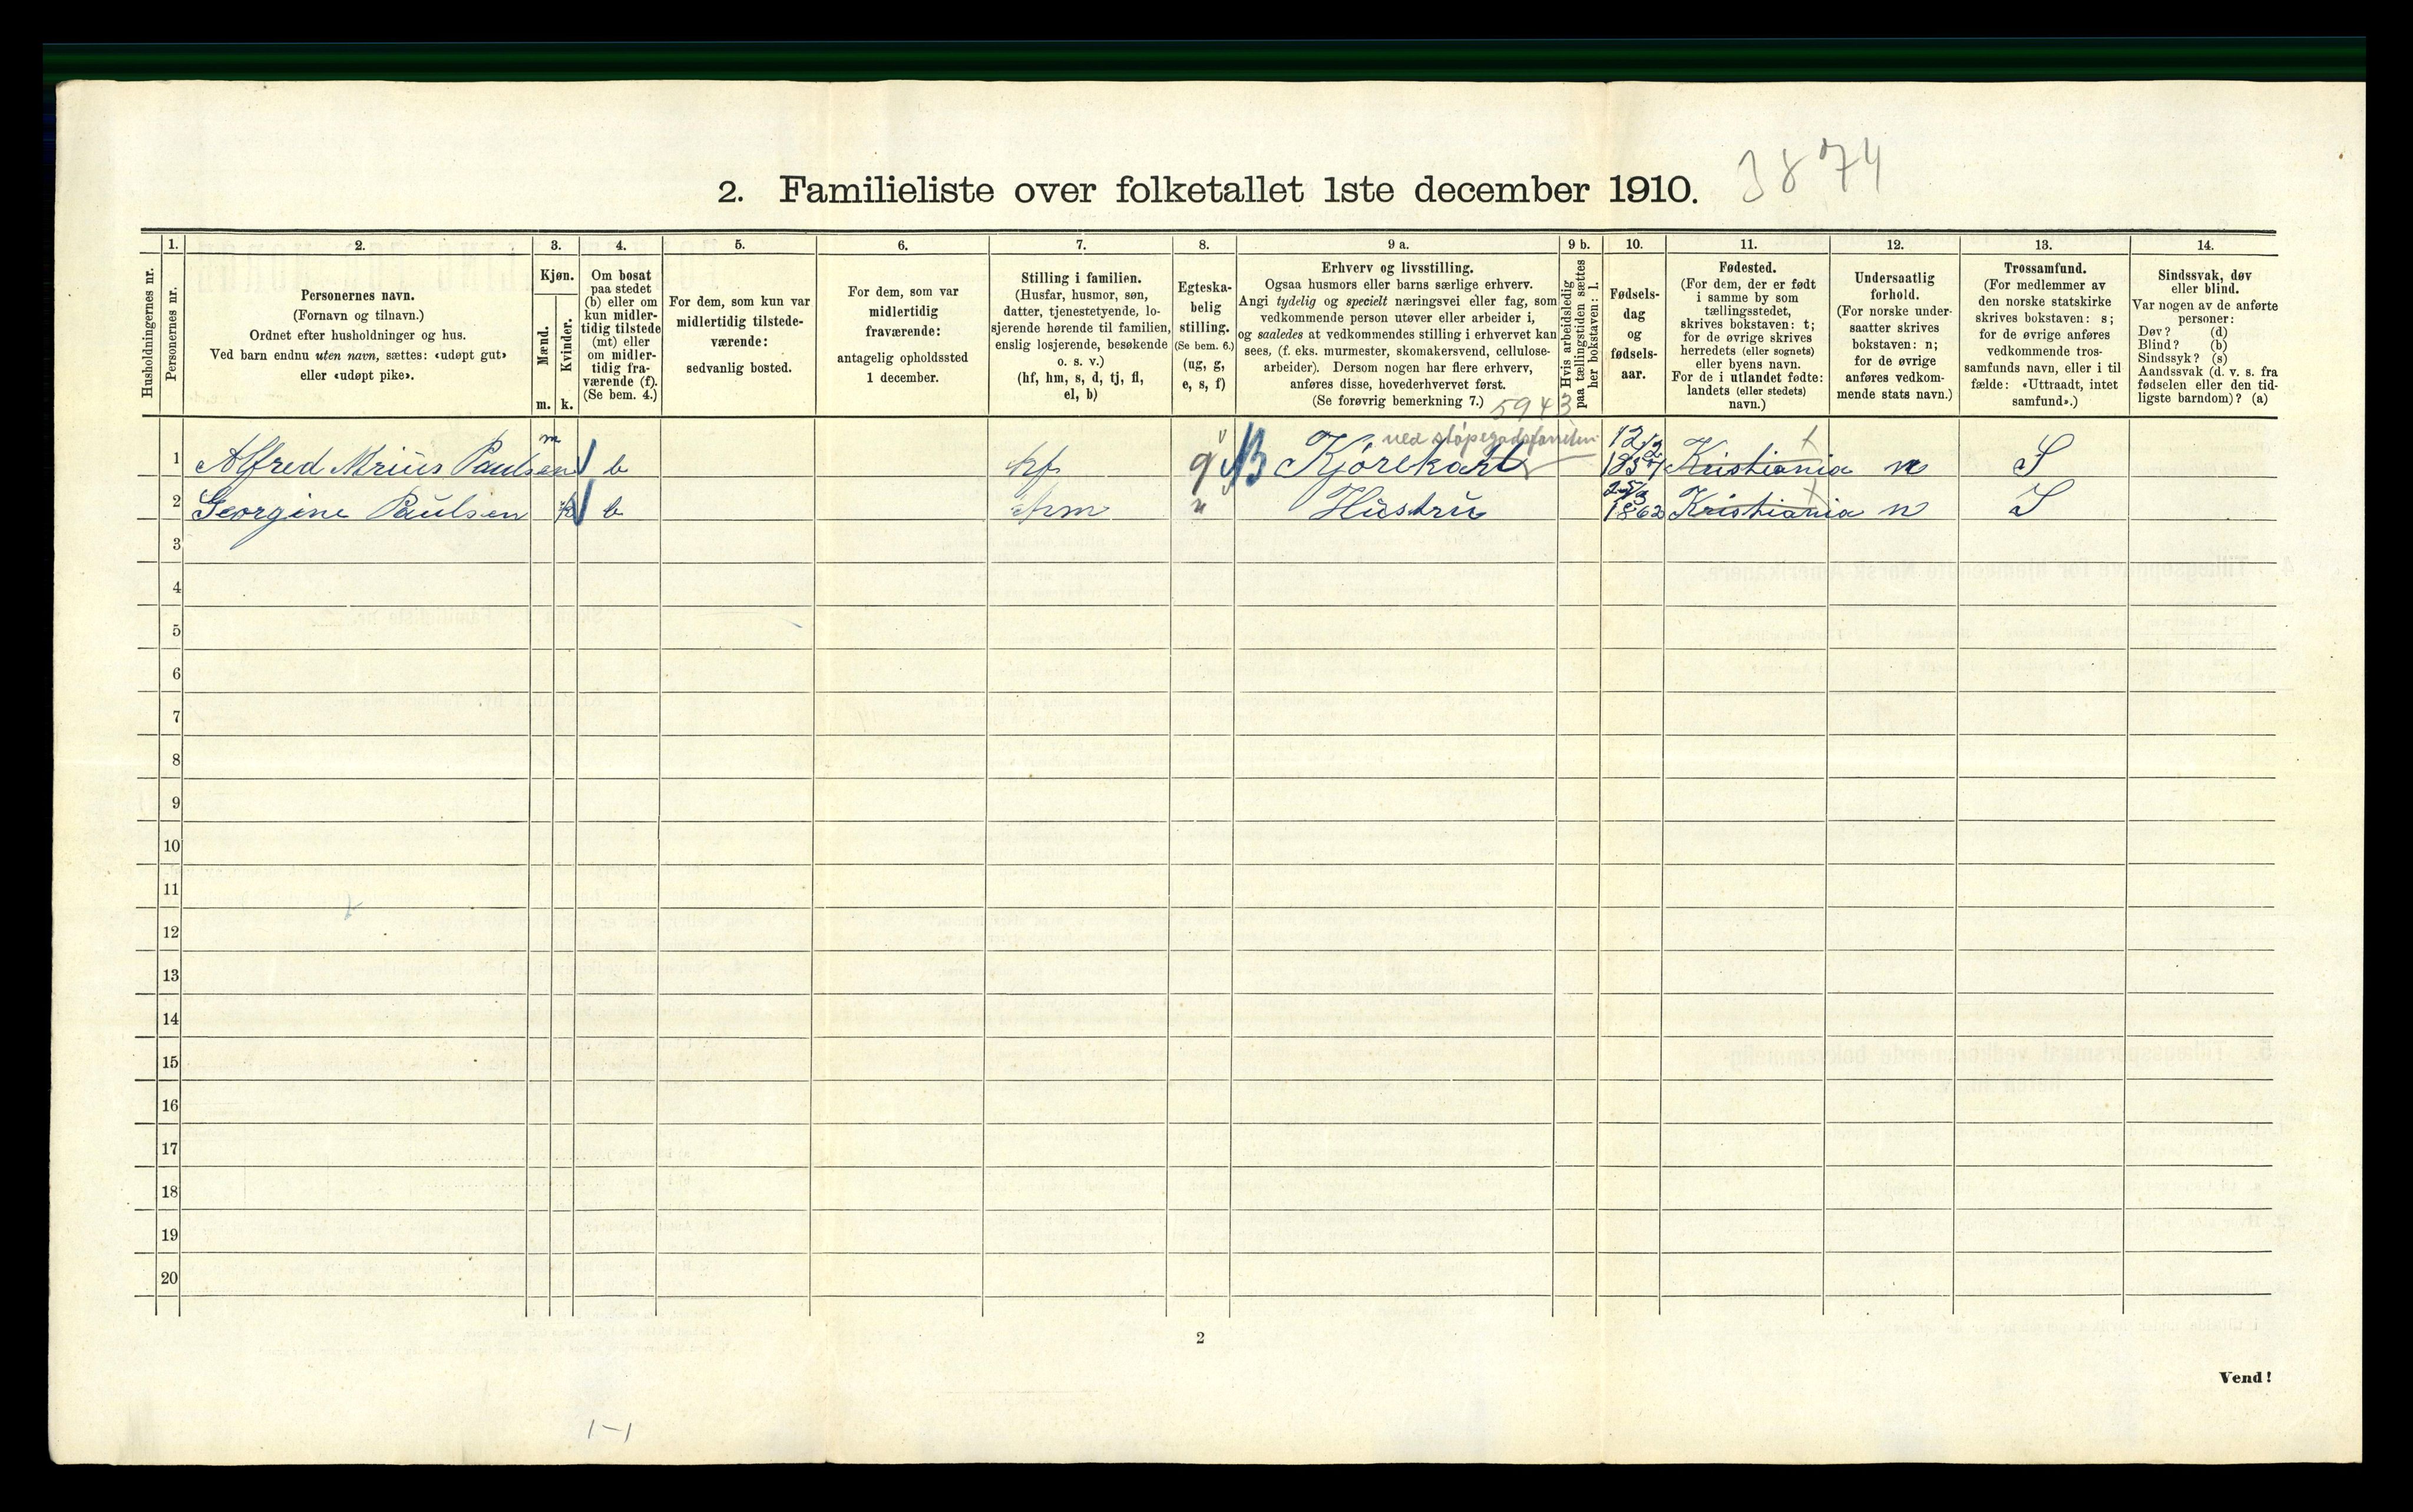 2. Familieliste over folketallet 1ste december 1910. 3874
Husholdningernes nr.
1.
Personernes nr.
2.
Personernes navn.
(Fornavn og tilnavn.)
Ordnet efter husholdninger og hus.
Ved barn endnu uten navn, sættes: «udøpt gut»
eller «udøpt pike».
3.
Kjøn.
Mænd.
Kvinder.
m. k.
4.
Om bosat
paa stedet
(b) eller om
kun midler-
tidig tilstede
(mt) eller
om midler-
tidig fra-
værende (f).
(Se bem. 4.)
5.
For dem, som kun var
midlertidig tilstede-
værende:
sedvanlig bosted.
6.
For dem, som var
midlertidig
fraværende:
antagelig opholdssted
1 december.
7.
Stilling i familien.
(Husfar, husmor, søn,
datter, tjenestetyende, lo-
sjerende hørende til familien,
enslig losjerende, besøkende
o. s. v.)
(hf, hm, s, d, tj, fl,
el, b)
8.
Egteska-
belig
stilling.
(Se bem. 6.)
(ug, g,
e, s, f)
9 a.
Erhverv og livsstilling.
Ogsaa husmors eller barns særlige erhverv.
Angi tydelig og specielt næringsvei eller fag, som
vedkommende person utøver eller arbeider i,
og saaledes at vedkommendes stilling i erhvervet kan
sees, (f. eks. murmester, skomakersvend, cellulose-
arbeider). Dersom nogen har flere erhverv,
anføres disse, hovederhvervet først.
(Se forøvrig bemerkning 7.) 5943
9 b.
Hvis arbeidsledig
paa tællingstiden sættes
her bokstaven: l.
10.
Fødsels-
dag
og
fødsels-
aar.
11.
Fødested.
(For dem, der er født
i samme by som
tællingsstedet,
skrives bokstaven: t;
for de øvrige skrives
herredets (eller sognets)
eller byens navn.
For de i utlandet fødte:
landets (eller stedets)
navn.)
12.
Undersaatlig
forhold.
(For norske under-
saatter skrives
bokstaven: n;
for de øvrige
anføres vedkom-
mende stats navn.)
13.
Trossamfund.
(For medlemmer av
den norske statskirke
skrives bokstaven: s;
for de øvrige anføres
vedkommende tros-
samfunds navn, eller i til
fælde: «Uttraadt, intet
samfund».)
14.
Sindssvak, døv
eller blind.
Var nogen av de anførte
personer:
Døv? (d)
Blind? (b)
Sindssyk? (s)
Aandssvak (d. v. s. fra
fødselen eller den tid-
ligste barndom)? (a)
1 Alfred Mrius Paulsen m b hf g B Kjørekarl Kristiania t n S
2 Georgine Paulsen k b hm Hustru 1862 Kristiania t n S
3
4
5
6
7
8
9
10
11
12
13
14
15
16
17
18
19
20
2
Vend!
1-1